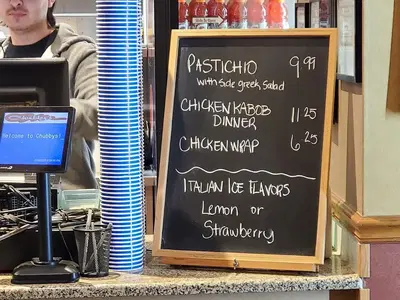 PASTICHIO 9.99
with side greek salad
CHICKEN KABOB
DINNER 11 25
CHICKEN WRAP 6.25
ITALIAN ICE FLAVORS
Lemon or
Strawberry
Chubbys
Welcome to Chubbys!